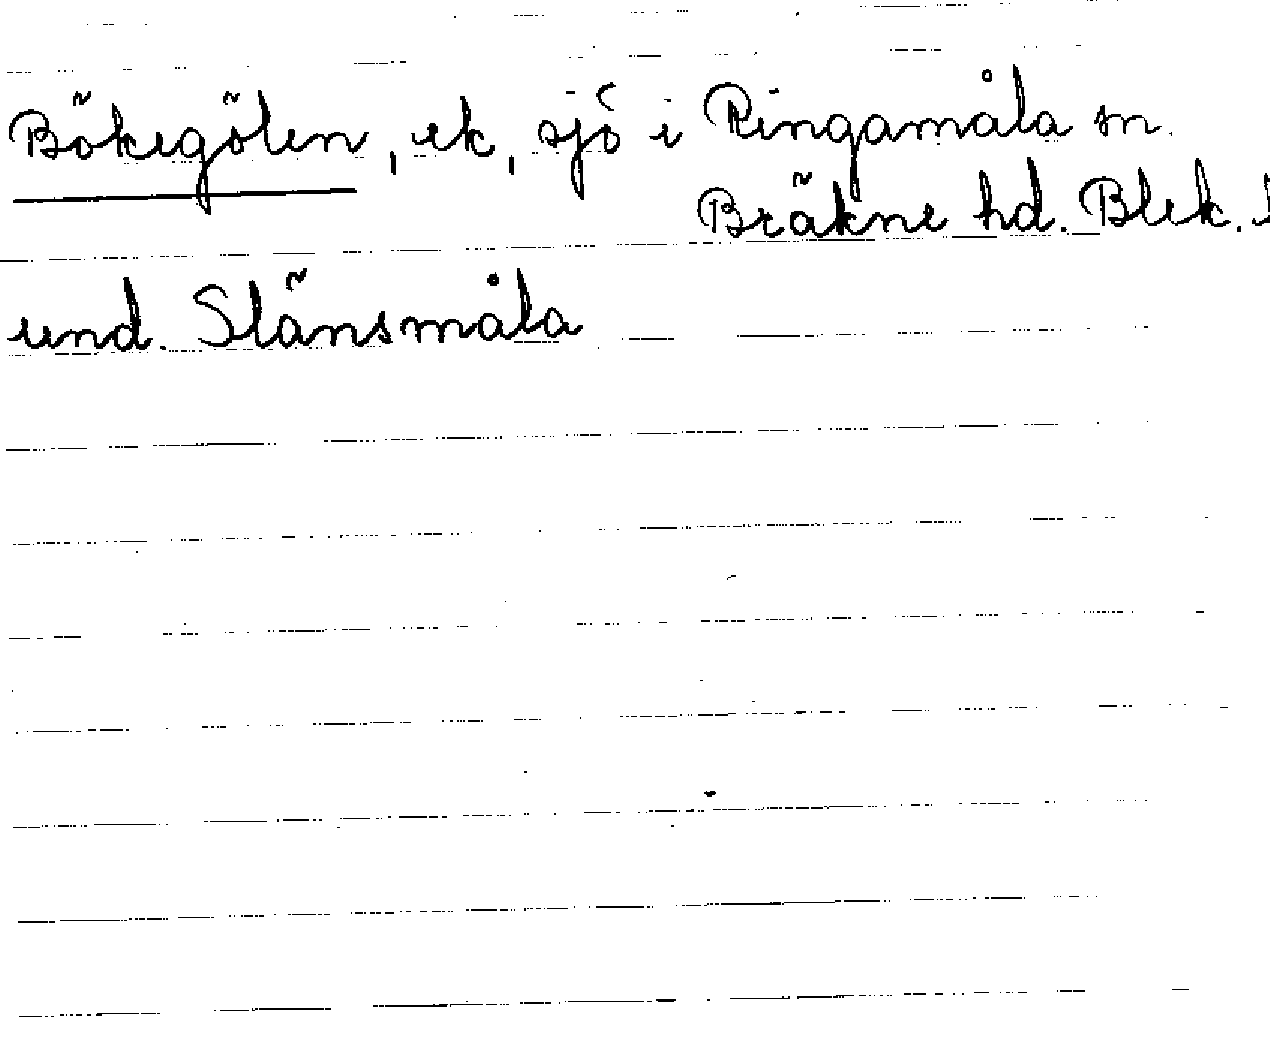 Bökegölen, ek, sjö i Ringamåla sn.
Bräkne hd. Blek.
und. Slänsmåla